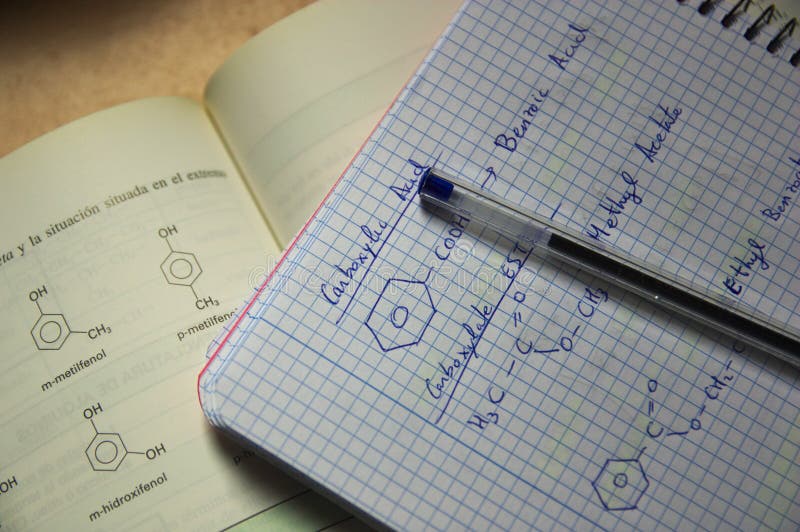 eta y la situación situada en el extremo
OH
CH₃
m-metilfenol
OH
CH₃
p-metilfenol
OH
OH
m-hidroxifenol
Carboxylic Acid
COOH → Benzoic Acid
Carboxylate EST
H₃C - C = O
O - CH₃
Methyl Acetate
C = O
O - CH₂ - C
Ethyl Benzoat
dreamstime